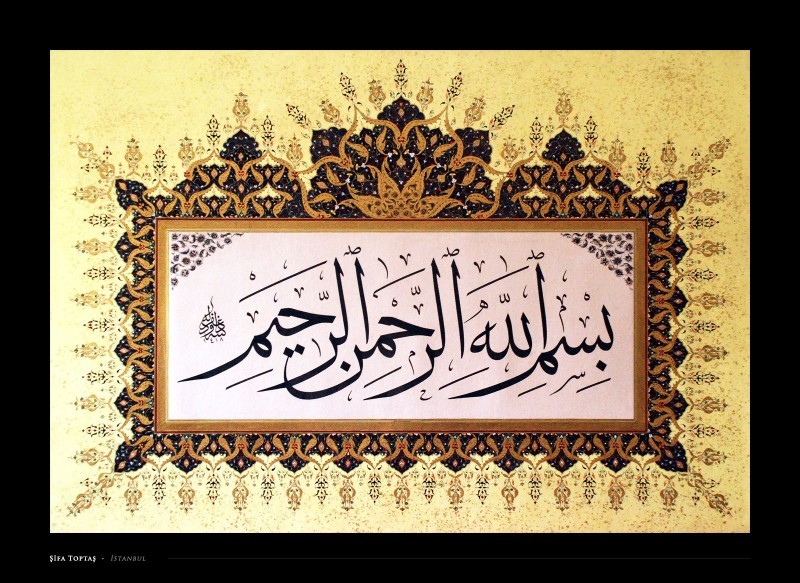 بِسْمِ اللّٰهِ الرَّحْمٰنِ الرَّحِيمِ
ŞİFA TOPTAŞ - İSTANBUL